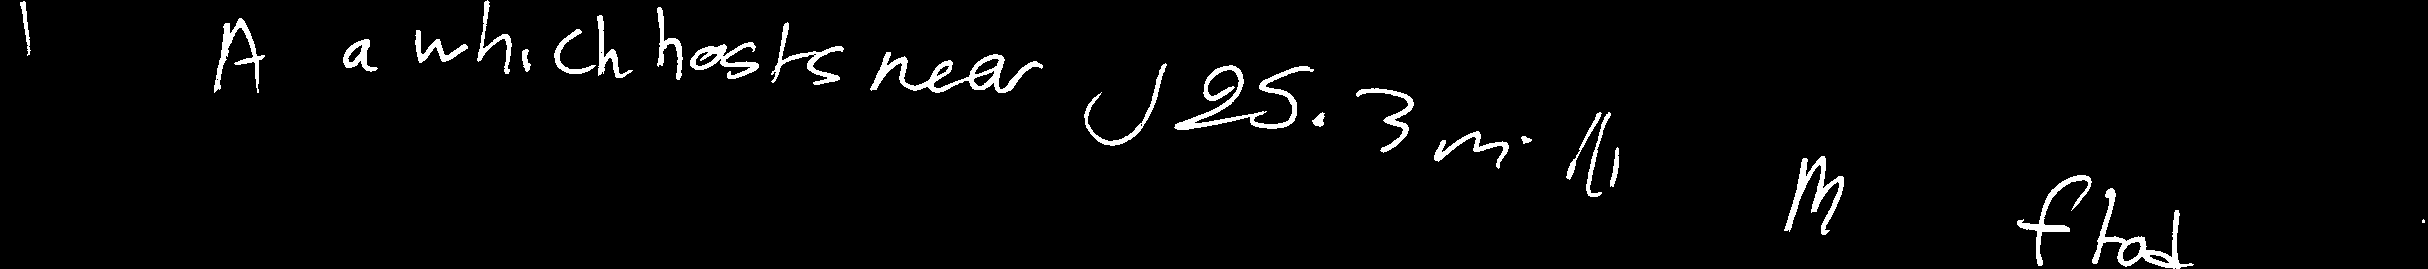 A a which hosts near J 25.3 mill M f